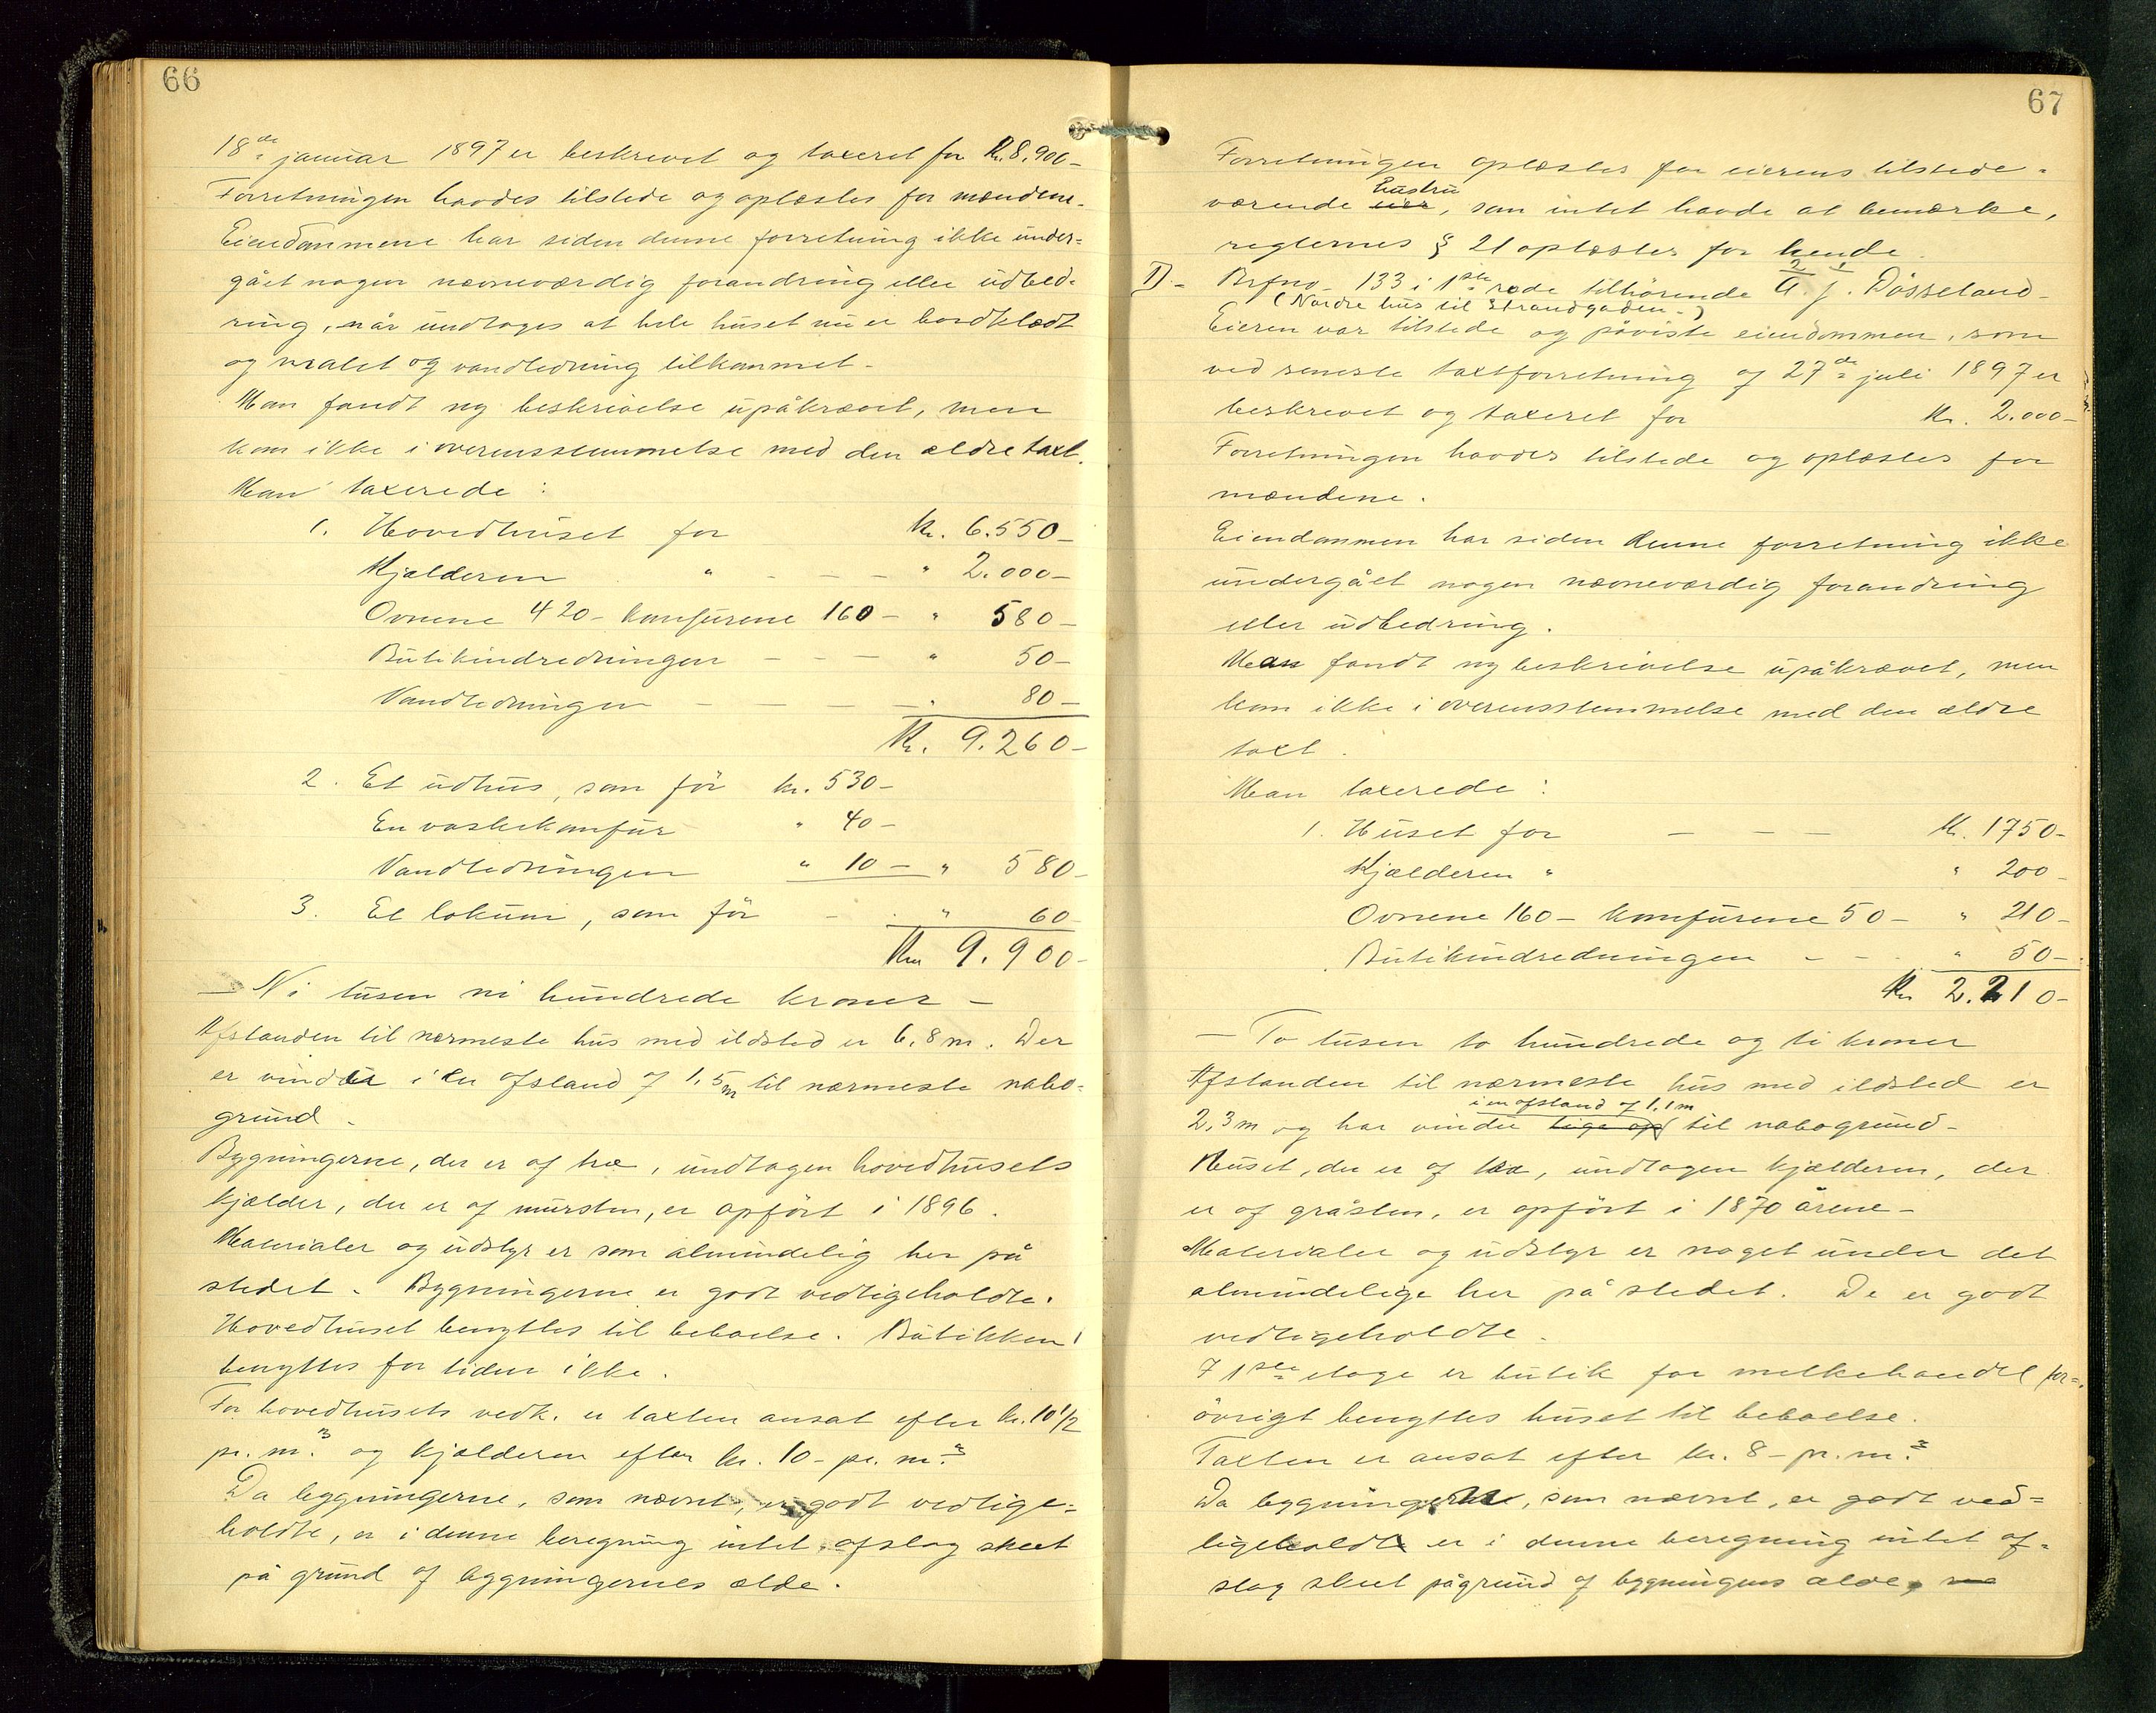 66
18de januar 1897 er beskrevet og taxeret for Kr. 8.900-
Forretningen havdes tilstede og oplæstes for mændene.
Eiendommene har siden denne forretning ikke under=
gået nogen nævneværdig forandring eller udbed=
ring, når undtages at hele huset nu er bordklædt
og malet og vandledning tilkommet-
Man fandt ny beskrivelse upåkrævet, men
kom ikke i overensstemmelse med den ældre taxt.
Man taxerede:
1. Hovedhuset for kr. 6.550-
Kjælderen " - - - " 2.000-
Ovnene 420- komfurene 160- " 580-
Butikindredningen - - - " 50-
Vandledningen - - - - " 80-
Kr. 9.260-
2. Et udhus, som får kr. 530-
En vaskekomfur " 40-
Vandledningen " 10- " 580-
3. Et lokum, som får - " 60
Kr 9.900-
- Ni tusen ni hundrede kroner -
Afstanden til nærmeste hus med ildsted er 6,8 m. Der
er vinduer i en afstand af 1,5 m til nærmeste nabo=
grund-
Bygningerne, der er af træ, undtagen hovedhusets
kjælder, der er af mursten, er opført i 1896.
Materialer og udstyr er som almindelig her på
stedet. Bygningerne er godt vedligeholdte.
Hovedhuset benyttes til beboelse. Butikken
benyttes for tiden ikke.
For hovedhusets vedk. er taxten ansat efter kr. 10 1/2
pr. m.3 og kjælderen efter kr. 10- pr. m.3
Da byggningerne, som nævnt, er godt vedlige=
holdte, er i denne beregning intet afslag skeet
på grund af byggningernes ælde.
67
Forretningen oplæstes for eierens tilstede=
værende eier hustru, som intet havde at bemærke,
reglernes § 21 oplæstes for hende.
1) - Brfno- 133 i 1ste rode tilhørende A. J. Døsseland-
(Nordre hus til Strandgaden-)
Eieren var tilstede og påviste eiendommen, som
ved seneste taxtforretning af 27de juli 1897 er
beskrevet og taxeret for kr. 2.000-
Forretningen havdes tilstede og oplæstes for
mændene.
Eiendommen har siden denne forretning ikke
undergået nogen nævneværdig forandring
eller udbedring.
Man fandt ny beskrivelse upåkrævet, men
kom ikke i overensstemmelse med den ældre
taxt.
Man taxerede:
1. Huset for - - - Kr. 1750-
Kjælderen " " 200-
Ovnene 160- komfurene 50- " 210-
Butikindredningen - - " 50-
Kr 2.210-
- To tusen to hundrede og ti kroner
Afstanden til nærmeste hus med ildsted er
i en afstand af 1,1 m
2,3 m og har vindu lige op til nabogrund-
Huset, der er af træ, undtagen kjælderen, der
er af gråsten, er opført i 1870 årene-
Materialer og udstyr er noget under det
almindelige her på stedet. De er godt
vedligeholdte.
I 1ste etage er butik for melkehandel for=
øvrigt benyttes huset til beboelse.
Taxten er ansat efter kr. 8- pr. m.3
Da byggningerne, som nævnt, er godt ved=
ligeholdt er i denne beregning intet af=
slag skeet på grund af byggningens ælde,